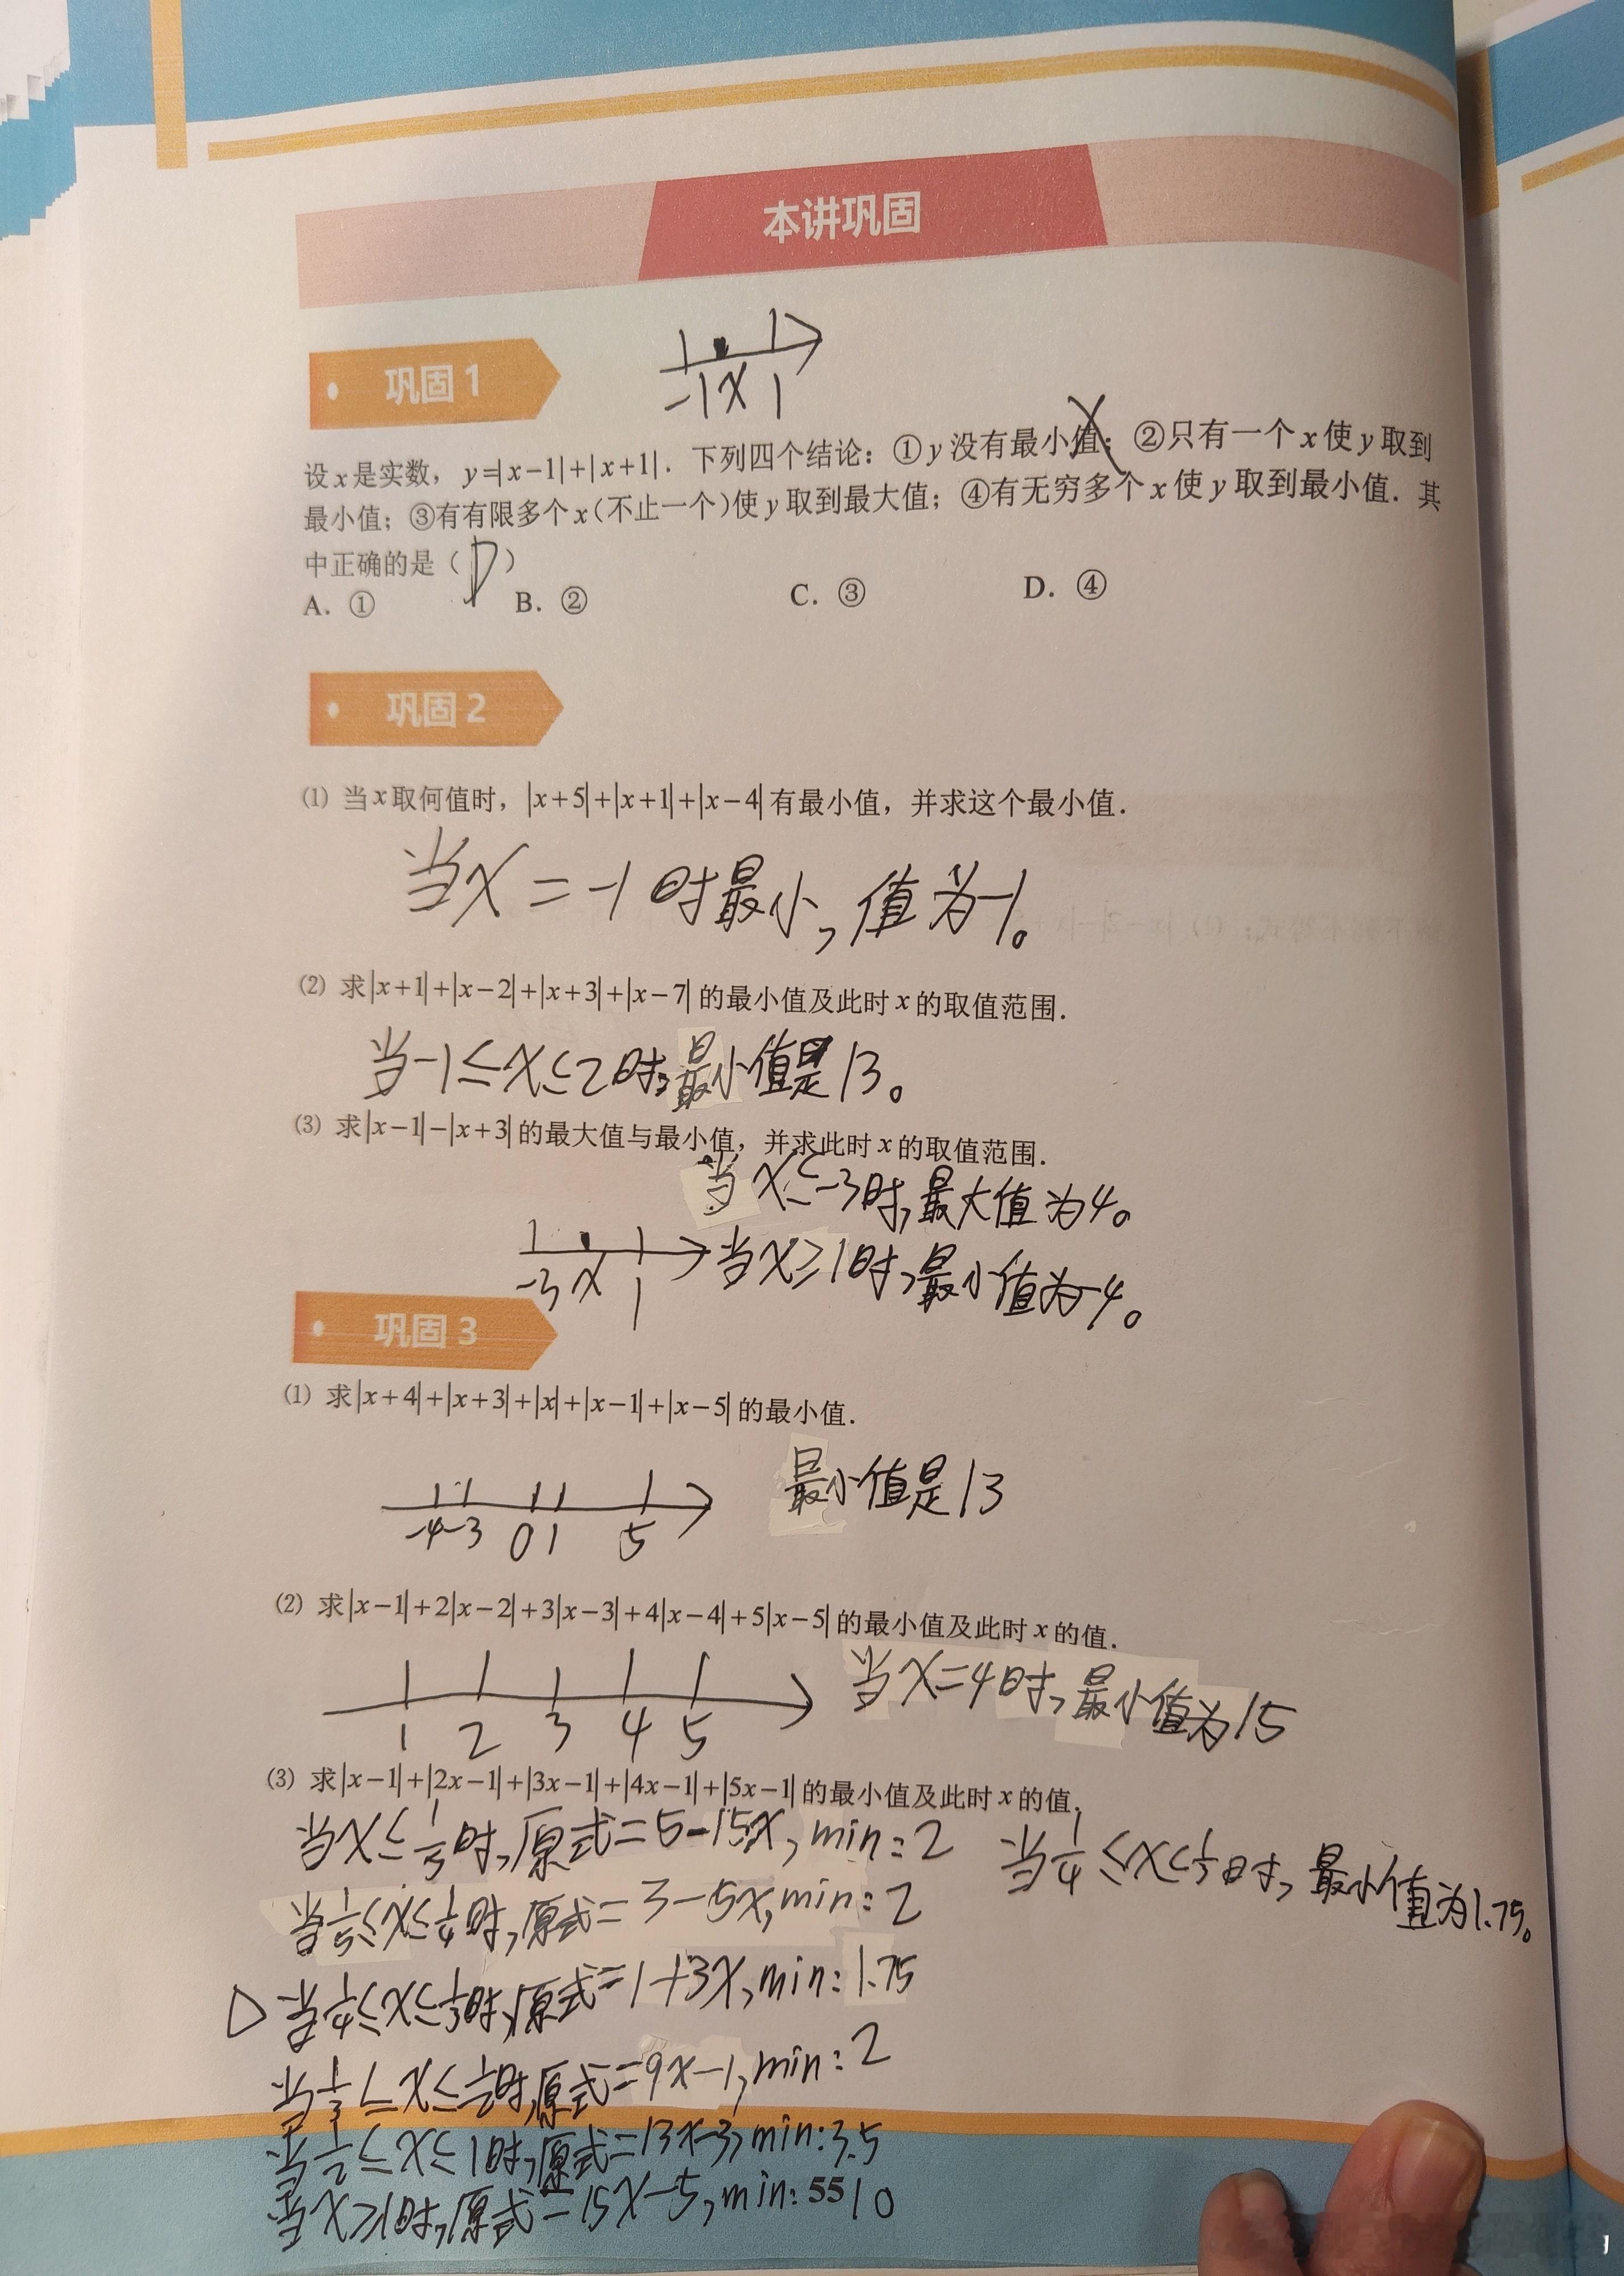 本讲巩固
巩固 1
-1 x 1
设x是实数，y=|x-1|+|x+1|．下列四个结论：①y没有最小值；②只有一个x使y取到
最小值；③有有限多个x（不止一个）使y取到最大值；④有无穷多个x使y取到最小值．其
中正确的是（D）
A．① B．② C．③ D．④
巩固 2
(1) 当x取何值时，|x+5|+|x+1|+|x-4|有最小值，并求这个最小值．
当x=-1时最小，值为-1。
(2) 求|x+1|+|x-2|+|x+3|+|x-7|的最小值及此时x的取值范围．
当-1≤x≤2时，最小值是13。
(3) 求|x-1|-|x+3|的最大值与最小值，并求此时x的取值范围．
当x≤-3时，最大值为4。
-3 x 1
当x≥1时，最小值为-4。
巩固 3
(1) 求|x+4|+|x+3|+|x|+|x-1|+|x-5|的最小值．
-4 -3 0 1 5
最小值是13
(2) 求|x-1|+2|x-2|+3|x-3|+4|x-4|+5|x-5|的最小值及此时x的值．
当x=4时，最小值为15
1 2 3 4 5
(3) 求|x-1|+|2x-1|+|3x-1|+|4x-1|+|5x-1|的最小值及此时x的值．
当x≤1/5时，原式=5-15x，min：2
当1/4≤x≤1/3时，最小值为1.75。
当1/5≤x≤1/4时，原式=3-5x，min：2
当1/4≤x≤1/3时，原式=1+3x，min：1.75
当1/3≤x≤1/2时，原式=9x-1，min：2
当1/2≤x≤1时，原式=13x-3，min：3.5
当x≥1时，原式=15x-5，min：10
55